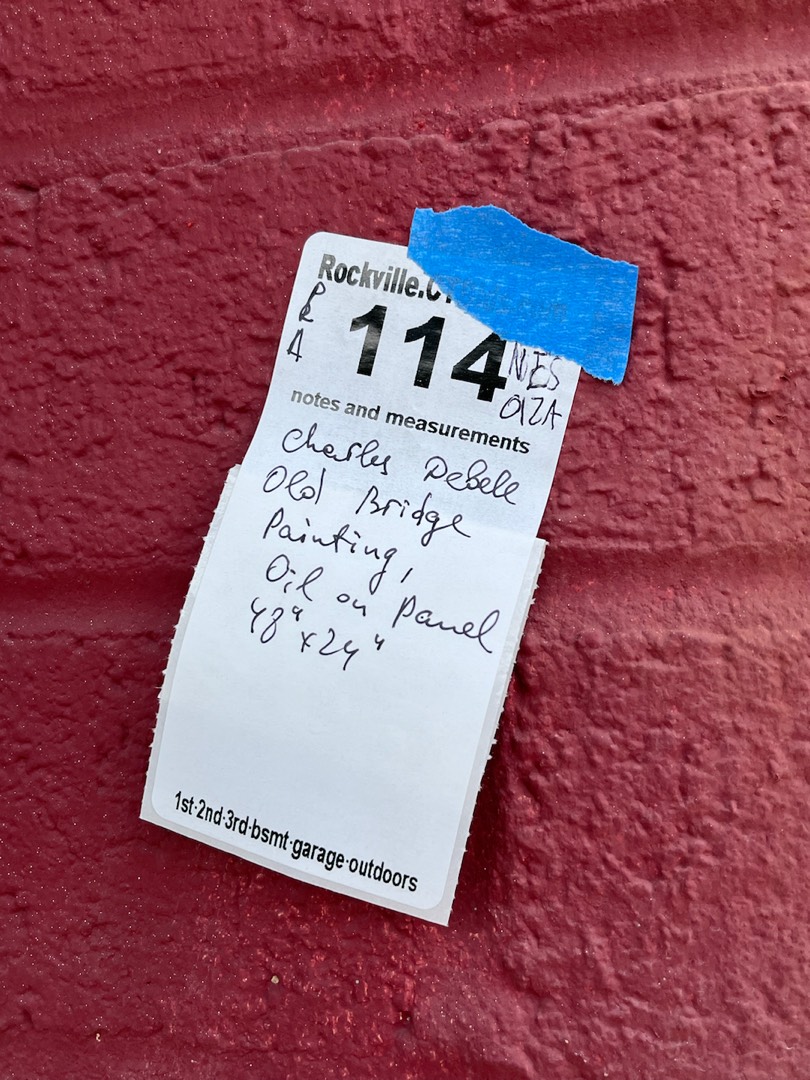 Rockville.CT
PR
A
114
NES
OIZA
notes and measurements
Charles Debell
Old Bridge
Painting,
Oil on Panel
48" x 24"
1st·2nd·3rd·bsmt·garage·outdoors